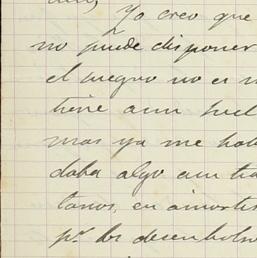 Yo creo que
no puede disponer
el suegro no es
tiene aun
mas ya me
daba algo aun
tanos, en amortis
pr. los desembols